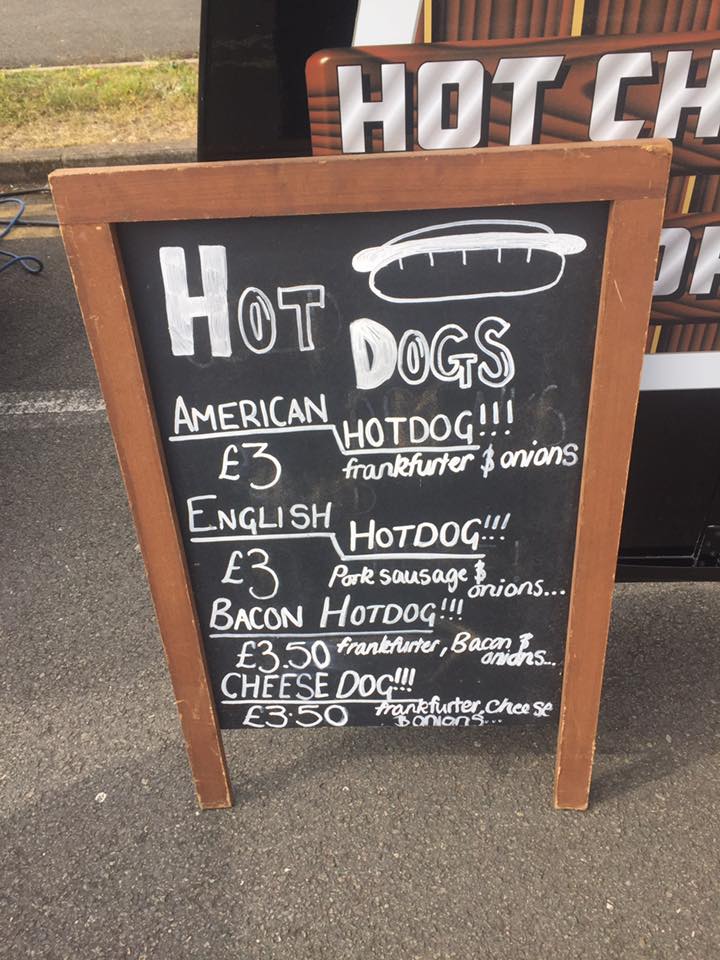 HOT CH
HOT
DOGS
AMERICAN HOTDOG!!!
£3 frankfurter & onions
ENGLISH HOTDOG!!!
£3 Pork sausage &
onions...
BACON HOTDOG!!!
£3.50 frankfurter, Bacon &
onions...
CHEESE DOG!!!
£3.50 frankfurter, cheese
& onions...